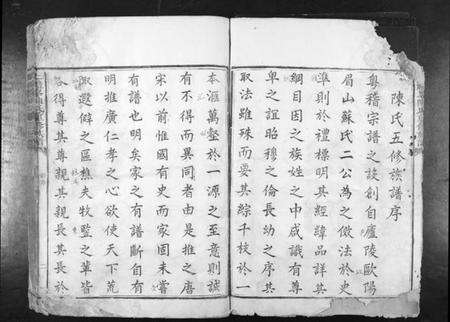 陳氏五修族譜序
粵稽宗譜之設創自廬陵歐陽
眉山蘇氏二公為之倣法於史
準則於禮標明其經緯品詳其
綱目因之族姓之中咸識有尊
卑之誼昭穆之倫長幼之序其
取法雖殊而要其綜千枝於一
本滙萬壑於一源之至意則誠
有不得而異同者由是推之唐
宋以前惟國有史而家固未嘗
有譜也明矣家之有譜斷自有
明推廣仁孝之心欲使天下荒
陬遐僻之區樵夫牧豎之輩皆
各得尊其尊親其親長其長於